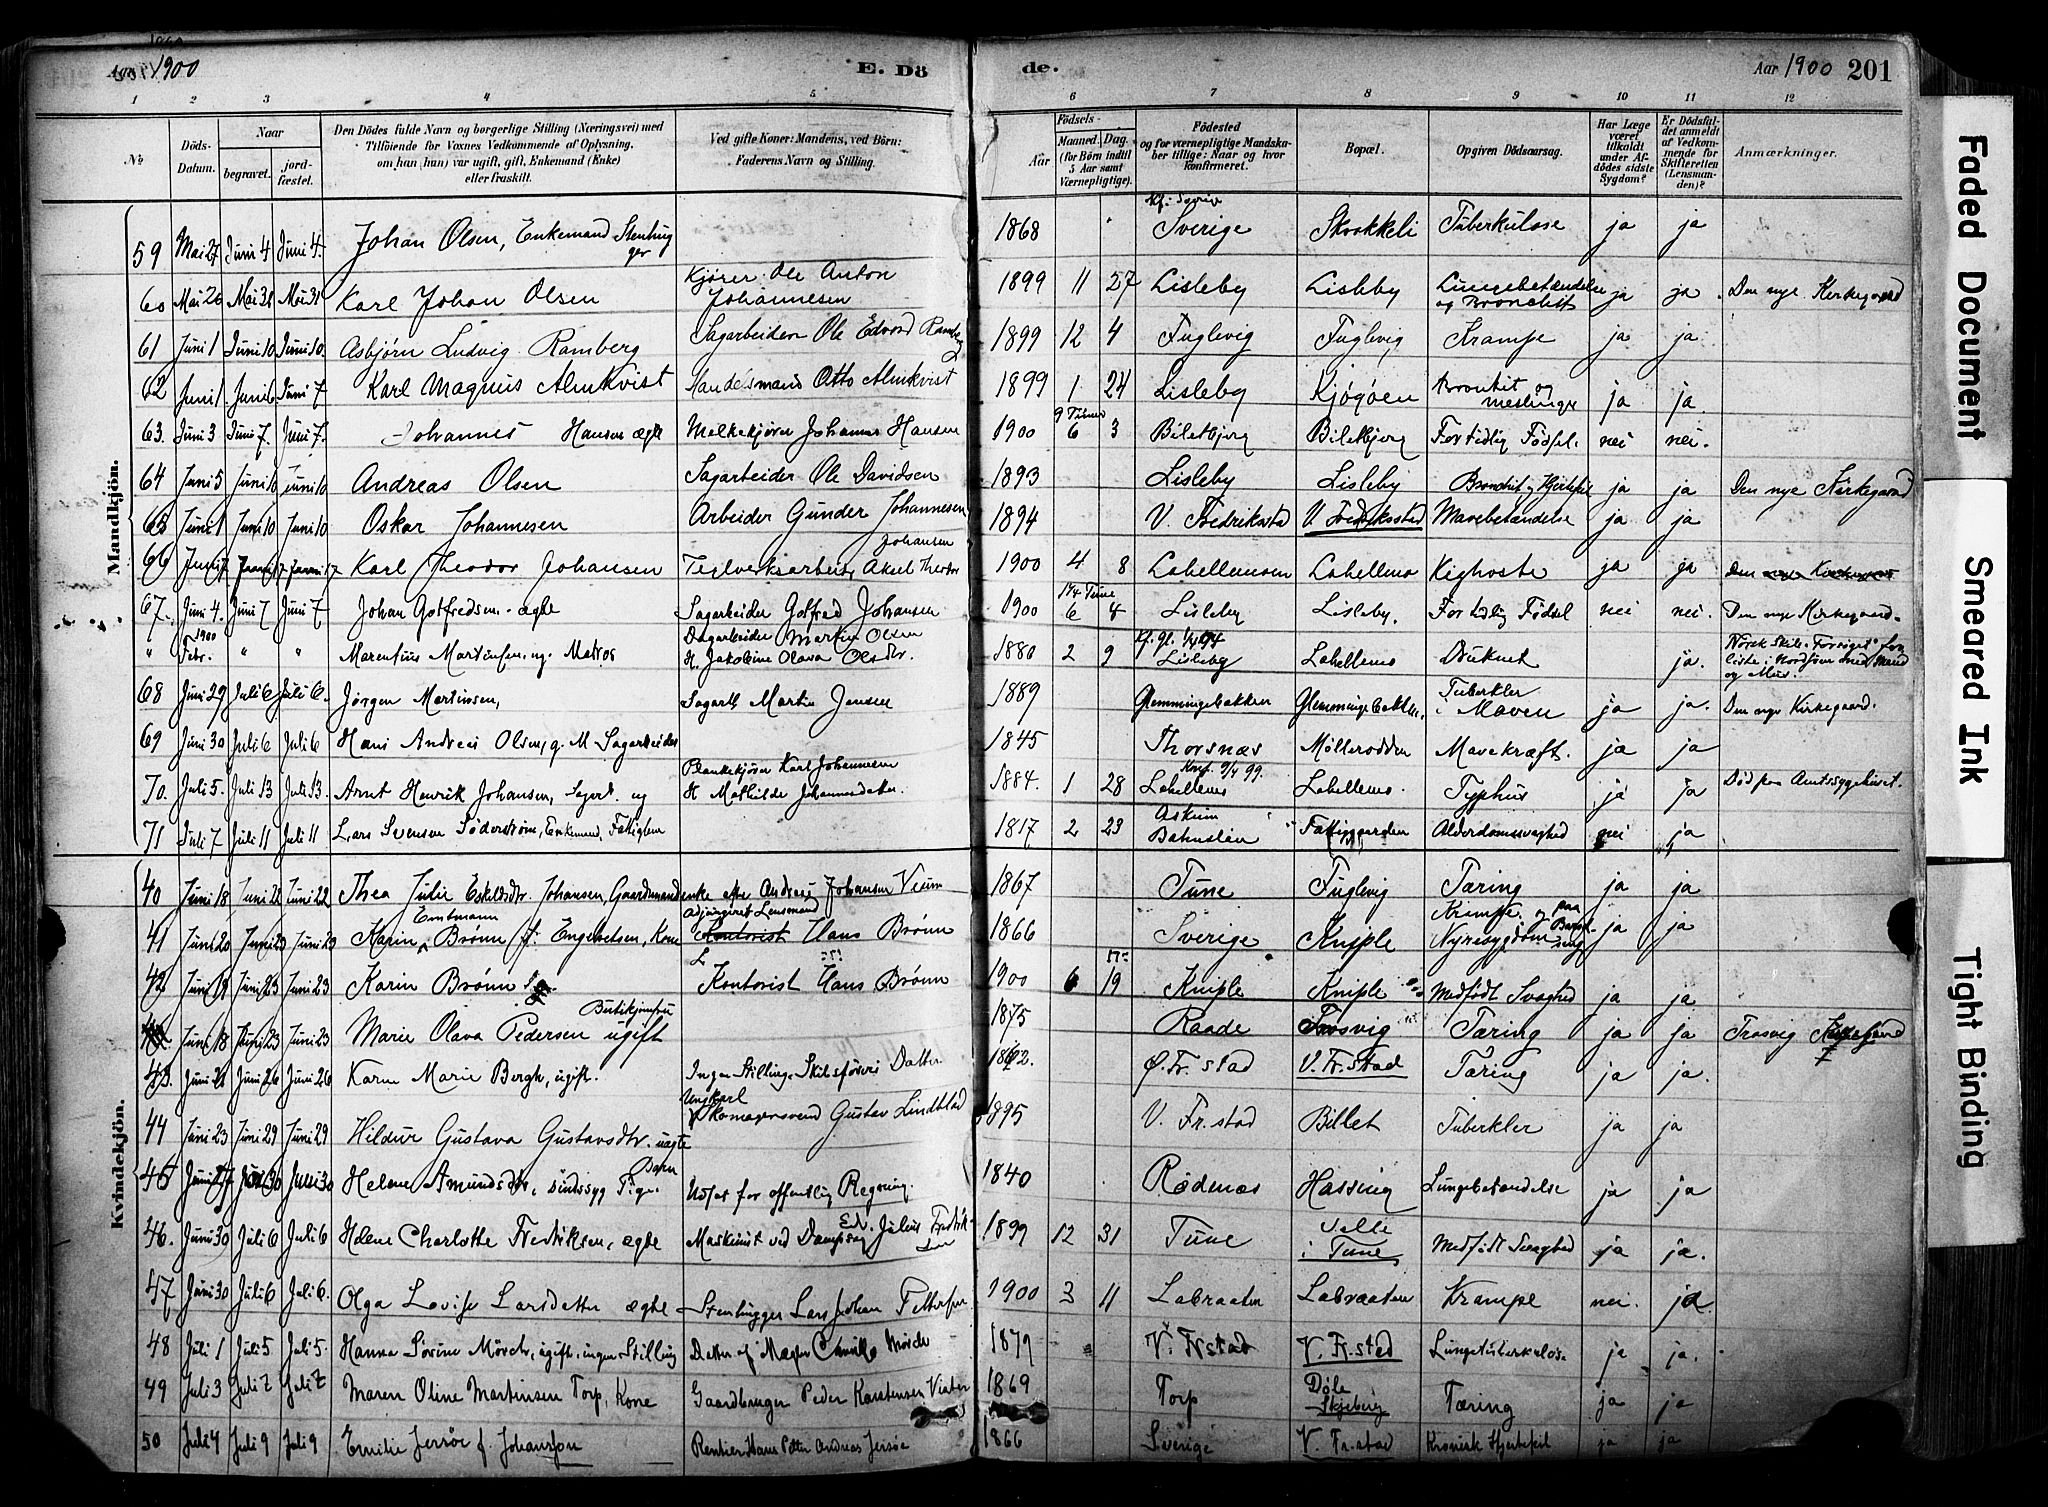 Aar 1900 E. Dö de. Aar 1900 201
1 2 3 4 5 6 7 8 9 10 11 12
№ Döds-Datum. Naar begravet. jordfæstet. Den Dödes fulde Navn og borgerlige Stilling (Næringsvei) med Tilföiende for Voxnes Vedkommende af Oplysning, om han (hun) var ugift, gift, Enkemand (Enke) eller fraskilt. Ved gifte Koner: Mandens, ved Börn: Faderens Navn og Stilling. Födsels- Aar Maaned. Dag. (for Börn indtil 5 Aar samt Værnepligtige). Födested og for værnepligtige Mandskaber tillige: Naar og hvor konfirmeret. Bopæl. Opgiven Dödsaarsag. Har Læge været tilkaldt under Afdödes sidste Sygdom? Er Dödsfaldet anmeldt af Vedkommende for Skifteretten (Lensmanden)? Anmærkninger.
Mandkjön.
59 Mai 27 Juni 4 Juni 4. Johan Olsen, Enkemand Stenhugger 1868 Sverige Skovkkeli Tuberkulose ja ja
60 Mai 26 Mai 31 Mai 31 Karl Johan Olsen Kjører Ole Anton Johannesen 1899 11 27 Lisleby Lisleby Lungebetændelse og Bronchit ja ja. Den nye Kirkegaard
61 Juni 1 Juni 10 Juni 10. Asbjørn Ludvig Ramberg Sagarbeider Ole Edvard Ramberg 1899 12 4 Fuglevig Fuglevig Krampe ja ja
62 Juni 1. Juni 6 Juni 7 Karl Magnus Almkvist Handelsmand Otto Almkvist 1899 1 24 Lisleby Kjøgøen Bronkit og meslinger ja ja.
63. Juni 3 Juni 7. Juni 7. Johannes Hansen ægte Melkekjører Johannes Hansen 1900 6 3 Biletbjerg Biletbjerg For tidlig Fødsel. nei nei.
64 Juni 5 Juni 10 Juni 10 Andreas Olsen Sagarbeider Ole Davidsen 1893 Lisleby Lisleby Bronchit og Hjertefeil ja ja Den nye Kirkegaard
65 Juni 1 Juni 10 Juni 10 Oskar Johannesen Arbeider Gunder Johannesen 1894 V. Fredriksstad V. Fredriksstad Mavebetændelse ja ja
66 Juni 7 Juni 17 Juni 17 Karl Theodor Johansen Teglverksarbeider Aksel Theodor Johansen 1900 4 8 Labellemoen Labellemo Kighoste ja ja Den nye Kirkegaard
67. Juni 4. Juni 7 Juni 7 Johan Gotfredsen. ægte Sagarbeider Gotfred Johansen 1900 6 4 Lisleby Lisleby. For tidlig Fødsel nei nei. Den nye Kirkegaard.
" 1900 Febr. " " Marentius Martinsen, ug. Matros Dagarbeider Martin Olsen H. Jakobine Olava Olsdtr. 1880 2 9 Lisleby Labellemo Druknet ja. Norsk Skib "Forsøget" forliste i Nordsjøen med Mand og Mus.
68 Juni 29 Juli 6 Juli 6. Jørgen Martinsen, Sagarb. Martin Jensen 1889 Glemmingebakken Glemmingebakken. Tuberkler i Maven ja ja. Den nye Kirkegaard.
69 Juni 30 Juli 6 Juli 6 Hans Andreas Olsen, g. M. Sagarbeider 1845 Thorsnæs Møllerodden Mavekræft. ja ja
70. Juli 5. Juli 13 Juli 13. Arnt Henrik Johansen, Sagarb. ug Plankekjører Karl Johannesen H Mathilde Johannesdatter. 1884. 1 28 Labellemo Konf. 9/4 99. Labellemo. Typhus ja ja Død paa Amtssygehuset.
71 Juli 7 Juli 11 Juli 11 Lars Svensen Söderstrøm, Enkemand, Fattiglem 1817 2 23 Askim Fattiggaarden Alderdomssvaghed nei ja
Kvindekjön.
40 Juni 18 Juni 22 Juni 22 Thea Julie Eskildsdtr Johansen, Gaardmandsenke efter Andreas Johansen Veum 1867 Tune Fuglevig Tæring ja ja
41 Juni 20 Juni 23 Juni 23 Karin Brønn f. Engebretsen, Kone adjungeret Lensmand Kontorist Hans Brønn 1866 Sverige Kniple Krampe og Nyresygdom paa Barselseng ja ja
42 Juni 19 Juni 23 Juni 23 Karin Brønn Kontorist Hans Brønn 1900 6 19 Kniple Kniple Medfødt Svaghed ja ja
Juni 18 Juni 23 Juni 23 Marie Olava Pedersen ugift Butikjomfru 1875 Raade Trosvig Tæring ja ja Trosvig Kirkegaard
43. Juni 21 Juni 26 Juni 26 Karen Marie Bergh, ugift. Ingen Stilling. Skibsførers Datter 1862. Ø. Fr. stad V. Fr. stad Tæring ja ja.
44 Juni 23 Juni 29 Juni 29 Hildur Gustava Gustavsdtr. uægte Barn Ungkarl Skomagersvend Gustav Lindblad 1895 V. Fr. stad Billet Tuberkler ja ja
45 Juni 27 Juni 30 Juni 30 Helene Amundsdtr, sindssyg Pige. Udsat for offentlig Regning. 1840 Rødenæs Hassing Lungebetændelse ja ja
46. Juni 30 Juli 6 Juli 6 Helene Charlotte Fredriksen, ægte Maskinist ved Dampsag Edv. Julius Fredriksen 1899 12 31 Tune Valle i Tune Medfødt Svaghed ja ja.
47 Juni 30 Juli 6 Juli 6. Olga Lovise Larsdatter ægte Stenhugger Lars Johan Pettersen 1900 3 11 Labraaten Labraaten Krampe nei. ja.
48 Juli 1 Juli 5 Juli 5. Hanna Sørine Mörch, ugift, ingen Stilling Datter af Mægler Mörch 1879 V. Frstad V. Fr. stad Lungetuberkulose ja ja.
49 Juli 3 Juli 7 Juli 7 Maren Oline Martinsen Torp, Kone Gaardbruger Peder Karstensen 1869 Torp Døle Skjeberg Tæring ja ja
50 Juli 4 Juli 9 Juli 9 Emilie Jersøe f. Johansson Rentier Hans Petter Andreas Jersøe 1866 Sverige V. Fr. stad Kronisk Hjertefeil ja ja
Faded Document
Smeared Ink
Tight Binding